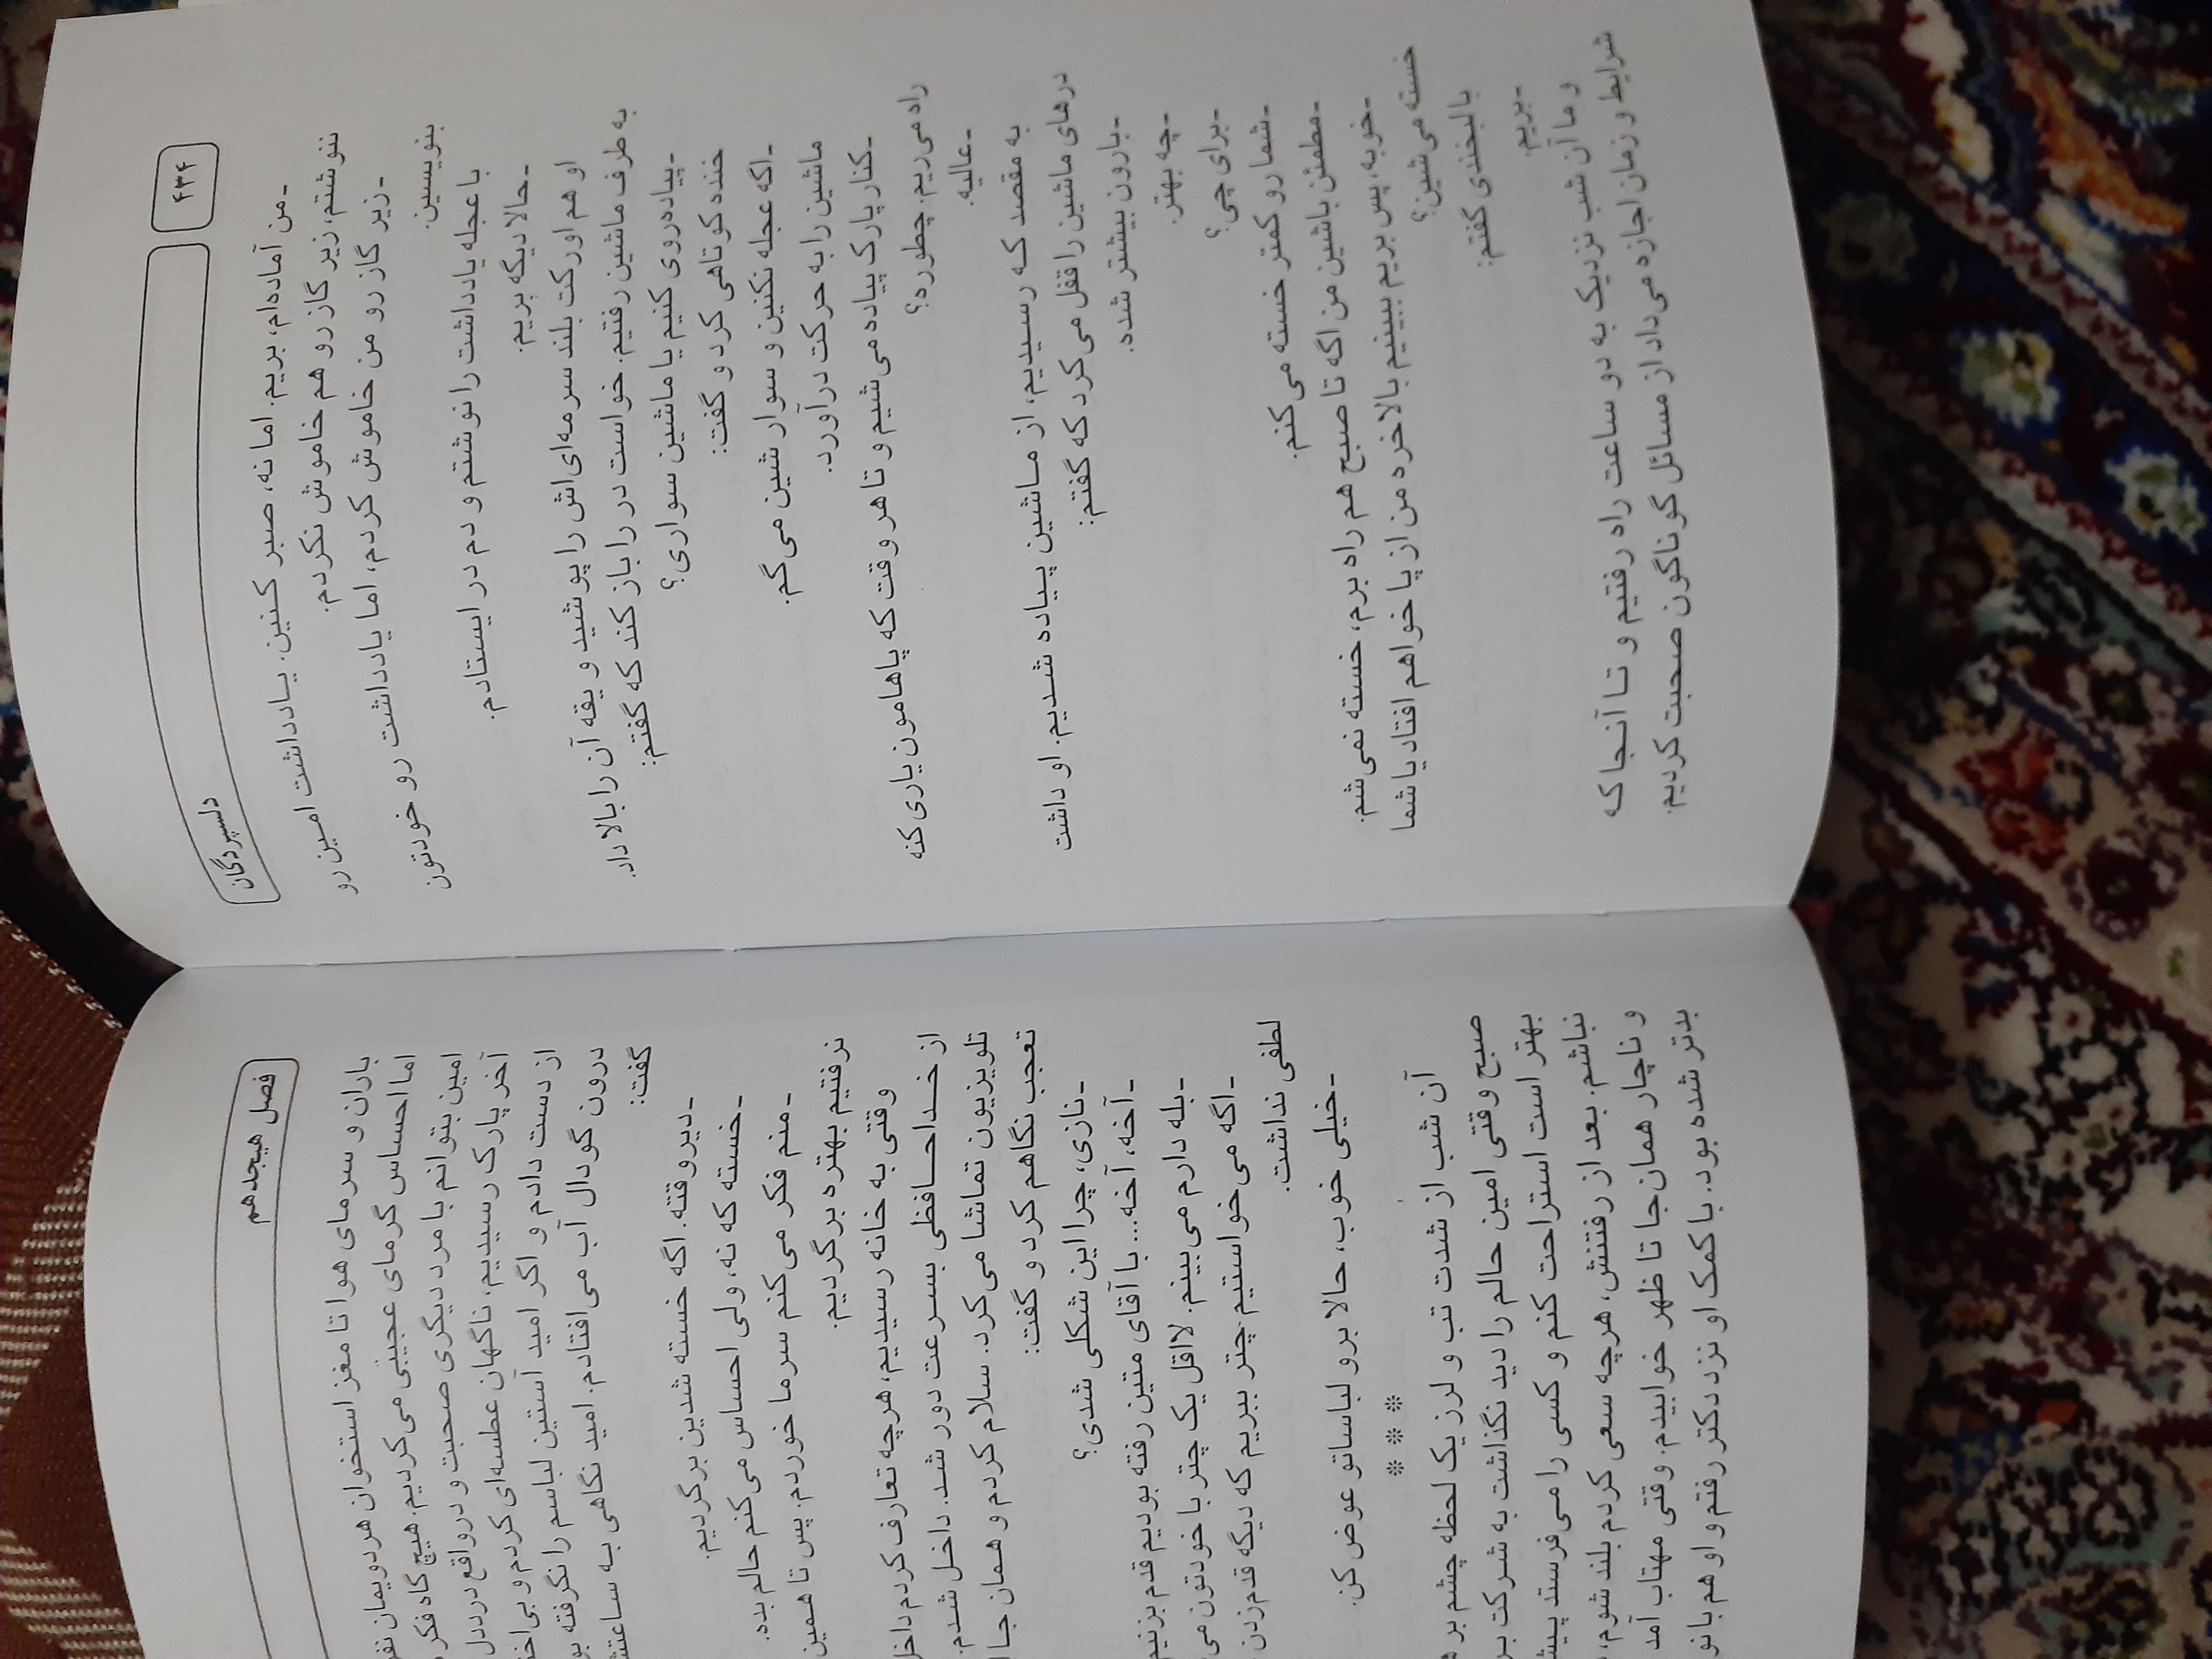 دلسپردگان
۴۳۴
-من آماده‌ام، بریم. اما نه، صبر کنین. یادداشت امین رو
ننوشتم، زیر گاز رو هم خاموش نکردم.
-زیر گاز رو من خاموش کردم، اما یادداشت رو خودتون
بنویسین.
با عجله یادداشت را نوشتم و دم در ایستادم.
-حالا دیگه بریم.
او هم اورکت بلند سرمه‌ای‌اش را پوشید و یقه آن را بالا داد.
به طرف ماشین رفتیم. خواست در را باز کند که گفتم:
-پیاده‌روی کنیم یا ماشین سواری؟
خنده کوتاهی کرد و گفت:
-اگه عجله نکنین و سوار شین می‌گم.
ماشین را به حرکت درآورد.
-کنار پارک پیاده می‌شیم و تا هر وقت که پاهامون یاری کنه
راه می‌ریم. چطوره؟
-عالیه.
به مقصد که رسیدیم، از ماشین پیاده شدیم. او داشت
درهای ماشین را قفل می‌کرد که گفتم:
-بارون بیشتر شده.
-چه بهتر.
-برای چی؟
-شما رو کمتر خسته می‌کنم.
-مطمئن باشین من اگه تا صبح هم راه برم، خسته نمی‌شم.
-خوبه، پس بریم ببینیم بالاخره من از پا خواهم افتاد یا شما
خسته می‌شین؟
با لبخندی گفتم:
-بریم.
و ما آن شب نزدیک به دو ساعت راه رفتیم و تا آنجا که
شرایط و زمان اجازه می‌داد از مسائل گوناگون صحبت کردیم.
فصل هیجدهم
باران و سرمای هوا تا مغز استخوان هردویمان
اما احساس گرمای عجیبی می‌کردیم. هیچ گاه فکر
امین بتوانم با مرد دیگری صحبت و درواقع درددل
آخر پارک رسیدیم، ناگهان عطسه‌ای کردم و
از دست دادم و اگر امید آستین لباسم را نگرفته
درون گودال آب می‌افتادم. امید نگاهی به
گفت:
-دیروقته. اگه خسته شدین برگردیم.
-خسته که نه، ولی احساس می‌کنم حالم بده.
-منم فکر می‌کنم سرما خوردم. پس تا همین
نرفتیم بهتره برگردیم.
وقتی به خانه رسیدیم، هرچه تعارف کردم
از خداحافظی بسرعت دور شد. داخل شدم.
تلویزیون تماشا می‌کرد. سلام کردم و همان جا
تعجب نگاهم کرد و گفت:
-نازی، چرا این شکلی شدی؟
-آخه، آخه... با آقای متین رفته بودیم قدم بزنیم
-بله دارم می‌بینم. لااقل یک چتر با خودتون
-اگه می‌خواستیم چتر ببریم که دیگه قدم زدن
لطفی نداشت.
-خیلی خوب، حالا برو لباساتو عوض کن.
* * *
آن شب از شدت تب و لرز یک لحظه چشم بر
صبح وقتی امین حالم را دید نگذاشت به شرکت
بهتر است استراحت کنم و کسی را می‌فرستد
نباشم. بعد از رفتنش، هرچه سعی کردم بلند شوم،
و ناچار همان جا تا ظهر خوابیدم. وقتی مهتاب آمد
بدتر شده بود. با کمک او نزد دکتر رفتم و او هم با